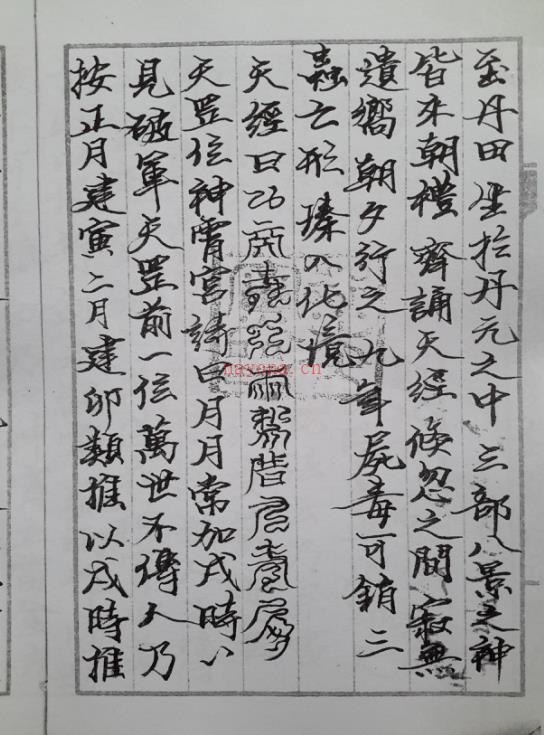 至丹田坐於丹元之中三部八景之神
皆來朝禮齊誦天經倏忽之間寂無
遺嚮朝夕行之九年尸毒可銷三
蟲亡形臻入化境
天經曰
天罡位神霄宮訣曰月月常加戌時時
見破軍天罡前一位萬世不傳人乃
按正月建寅二月建卯類推以戌時推
nayona.cn